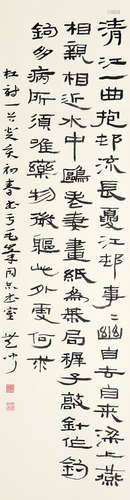 清江一曲抱邨流長夏江邨事〻幽自去自來梁上燕
相親相近水中鷗老妻畫紙為棊局稚子敲針作釣
鉤多病所須惟藥物微軀此外更何求
杜詩一首癸亥初春書于